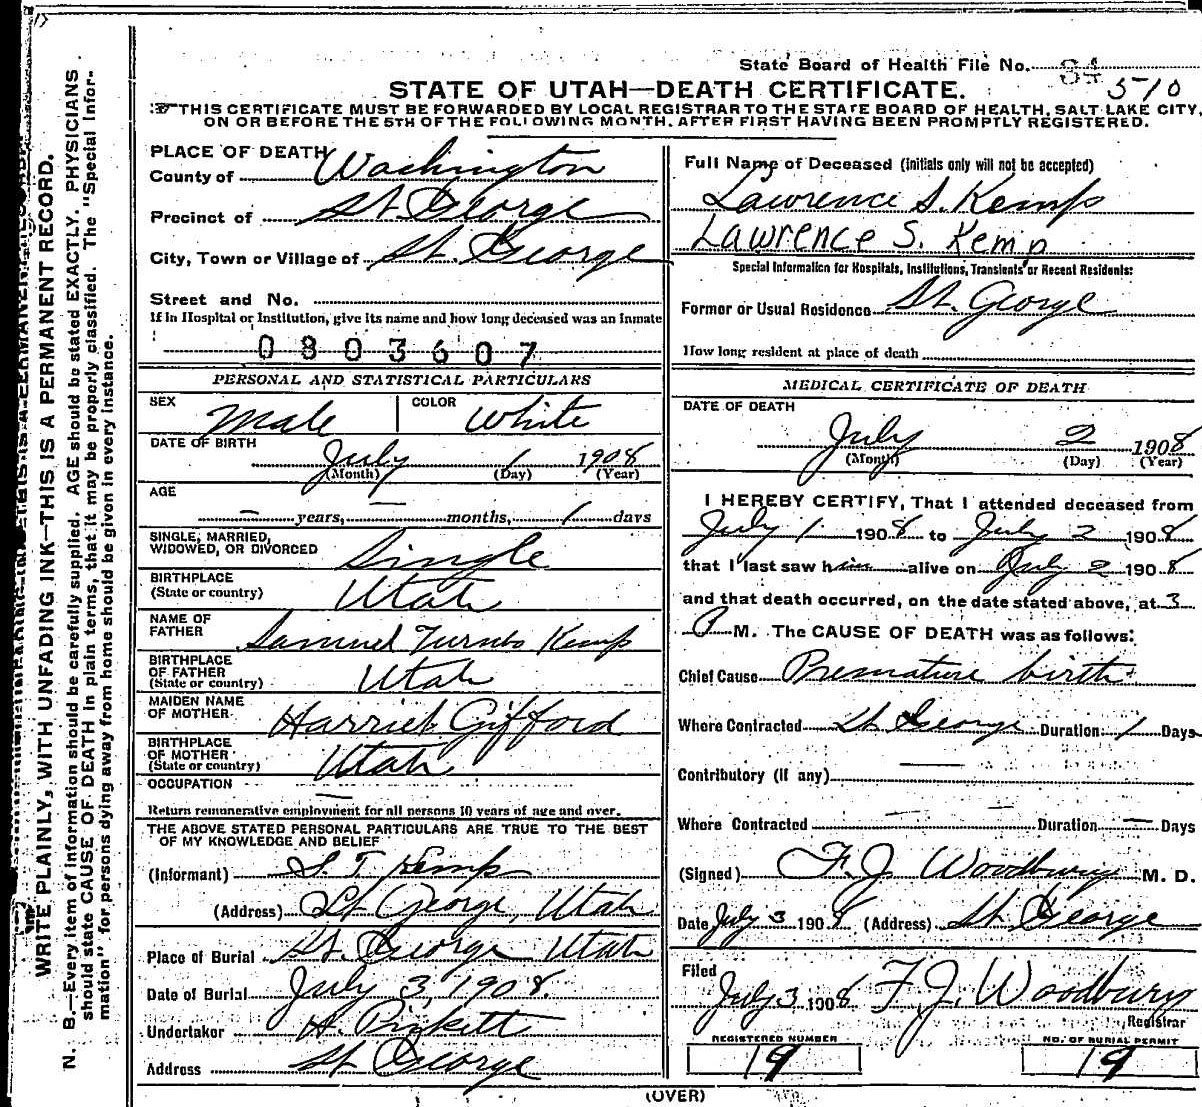 State Board of Health File No. 84 510
STATE OF UTAH—DEATH CERTIFICATE.
THIS CERTIFICATE MUST BE FORWARDED BY LOCAL REGISTRAR TO THE STATE BOARD OF HEALTH, SALT LAKE CITY,
ON OR BEFORE THE 5TH OF THE FOLLOWING MONTH, AFTER FIRST HAVING BEEN PROMPTLY REGISTERED.
WRITE PLAINLY, WITH UNFADING INK—THIS IS A PERMANENT RECORD.
N. B.—Every item of information should be carefully supplied. AGE should be stated EXACTLY. PHYSICIANS
should state CAUSE OF DEATH in plain terms, that it may be properly classified. The "Special Infor-
mation" for persons dying away from home should be given in every instance.
PLACE OF DEATH
County of Washington
Precinct of St. George
City, Town or Village of St. George
Street and No.
If in Hospital or Institution, give its name and how long deceased was an Inmate
0803607
PERSONAL AND STATISTICAL PARTICULARS
SEX Male COLOR White
DATE OF BIRTH
July 1 1908
(Month) (Day) (Year)
AGE
— years, — months, 1 days
SINGLE, MARRIED,
WIDOWED, OR DIVORCED Single
BIRTHPLACE
(State or country) Utah
NAME OF
FATHER Samuel Turnbo Kemp
BIRTHPLACE
OF FATHER
(State or country) Utah
MAIDEN NAME
OF MOTHER Harriet Gifford
BIRTHPLACE
OF MOTHER
(State or country) Utah
OCCUPATION —
Return remunerative employment for all persons 10 years of age and over.
THE ABOVE STATED PERSONAL PARTICULARS ARE TRUE TO THE BEST
OF MY KNOWLEDGE AND BELIEF
(Informant) S. T. Kemp
(Address) St George, Utah
Place of Burial St. George Utah
Date of Burial July 3, 1908.
Undertaker H. Pickett
Address St George
Full Name of Deceased (initials only will not be accepted)
Lawrence S. Kemp
Lawrence S. Kemp
Special Information for Hospitals, Institutions, Transients or Recent Residents:
Former or Usual Residence St. George
How long resident at place of death
MEDICAL CERTIFICATE OF DEATH
DATE OF DEATH
July 2 1908
(Month) (Day) (Year)
I HEREBY CERTIFY, That I attended deceased from
July 1 1908 to July 2 1908
that I last saw him alive on July 2 1908
and that death occurred, on the date stated above, at 3
P M. The CAUSE OF DEATH was as follows:
Chief Cause Premature birth
Where Contracted St George Duration 1 Days
Contributory (if any) —
Where Contracted — Duration — Days
(Signed) F. J. Woodbury M. D.
Date July 3 1908 (Address) St George
Filed
July 3 1908 F. J. Woodbury
Registrar
REGISTERED NUMBER
19
NO. OF BURIAL PERMIT
19
(OVER)